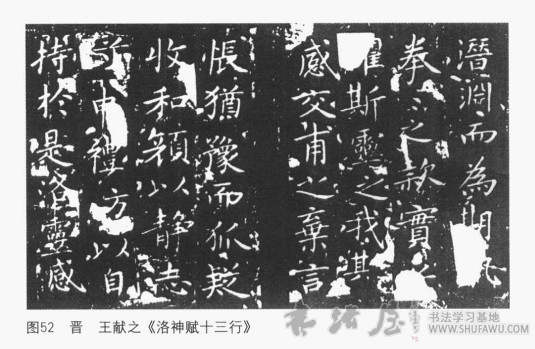 潛淵而為期執
拳之款實
懼斯靈之我其
感交甫之棄言
悵猶豫而狐疑
收和顏以静志
申禮方以自
持於是洛靈感
图52 晋 王献之《洛神赋十三行》
书法屋 书法学习基地
WWW.SHUFAWU.COM